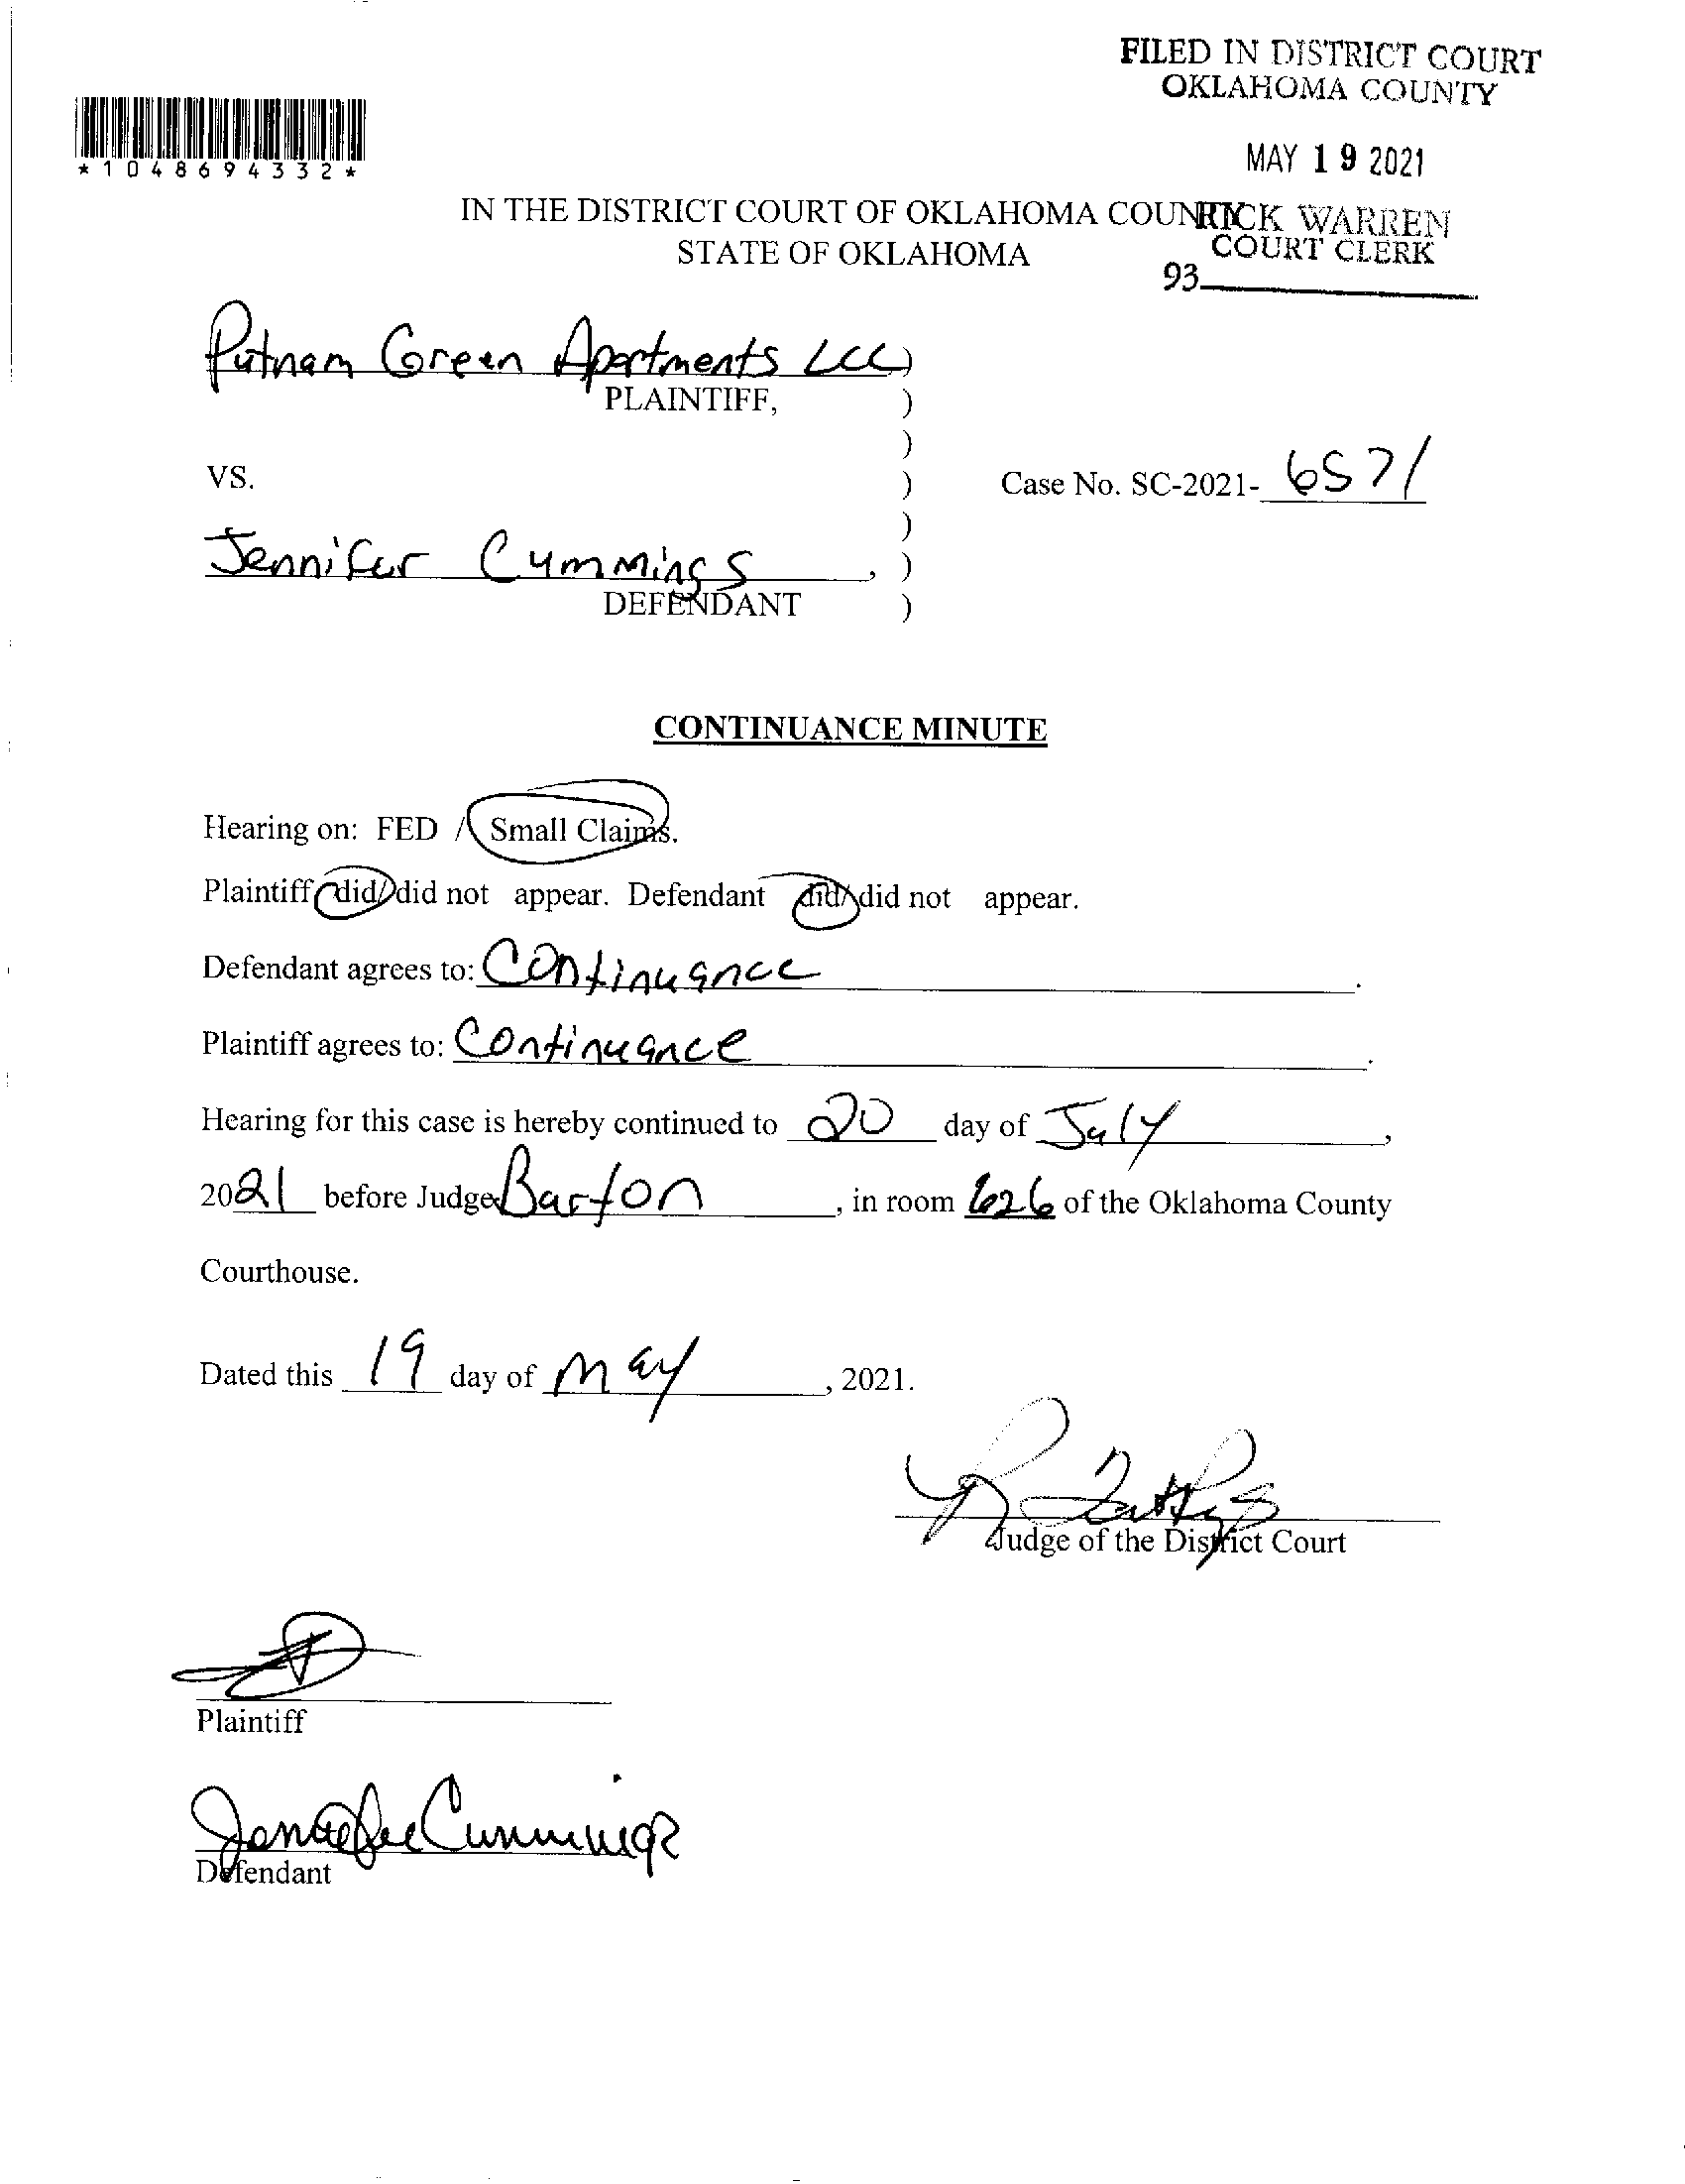 FILED IN DISTRICT COURT
OKLAHOMA COUNTY
MAY 19 2021
RICK WARREN
COURT CLERK
93
*1048694332*
IN THE DISTRICT COURT OF OKLAHOMA COUNTY
STATE OF OKLAHOMA
Putnam Green Apartments LLC )
PLAINTIFF, )
)
VS. ) Case No. SC-2021- 6571
)
Jennifer Cummings , )
DEFENDANT )
CONTINUANCE MINUTE
Hearing on: FED / Small Claims.
Plaintiff did/did not appear. Defendant did/did not appear.
Defendant agrees to: Continuance .
Plaintiff agrees to: Continuance .
Hearing for this case is hereby continued to 20 day of July ,
2021 before Judge Barton , in room 626 of the Oklahoma County
Courthouse.
Dated this 19 day of May , 2021.
Judge of the District Court
Plaintiff
Jennifer Cummings
Defendant